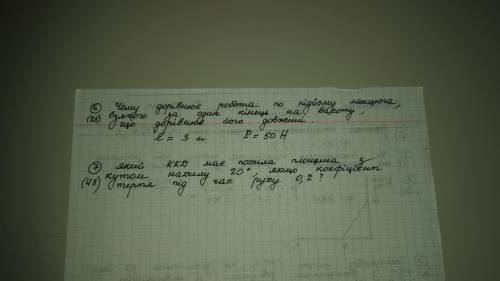 ⑥ Чому дорівнює робота по підйому ланцюга,
(2б) взятого за один кінець на висоту,
що дорівнює його довжині.
ℓ = 3 м P = 50 Н
⑦ Який ККД має похила площина з
(4б) кутом нахилу 20° якщо коефіцієнт
тертя під час руху 0,2?